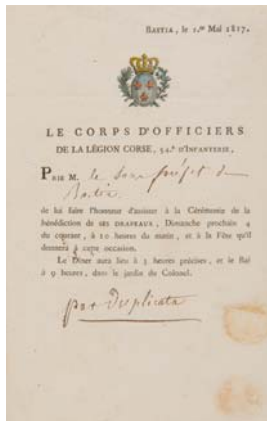 BASTIA, le 1.er Mai 1817.
LE CORPS D'OFFICIERS
DE LA LÉGION CORSE, 54.e D'INFANTERIE,
PRIE M. le sous préfet de
Bastia
de lui faire l'honneur d'assister à la Cérémonie de la
bénédiction de SES DRAPEAUX, Dimanche prochain 4
du courant, à 10 heures du matin, et à la Fête qu'il
donnera à cette occasion.
Le Dîner aura lieu à 3 heures précises, et le Bal
à 9 heures, dans le jardin du Colonel.
par Duplicata